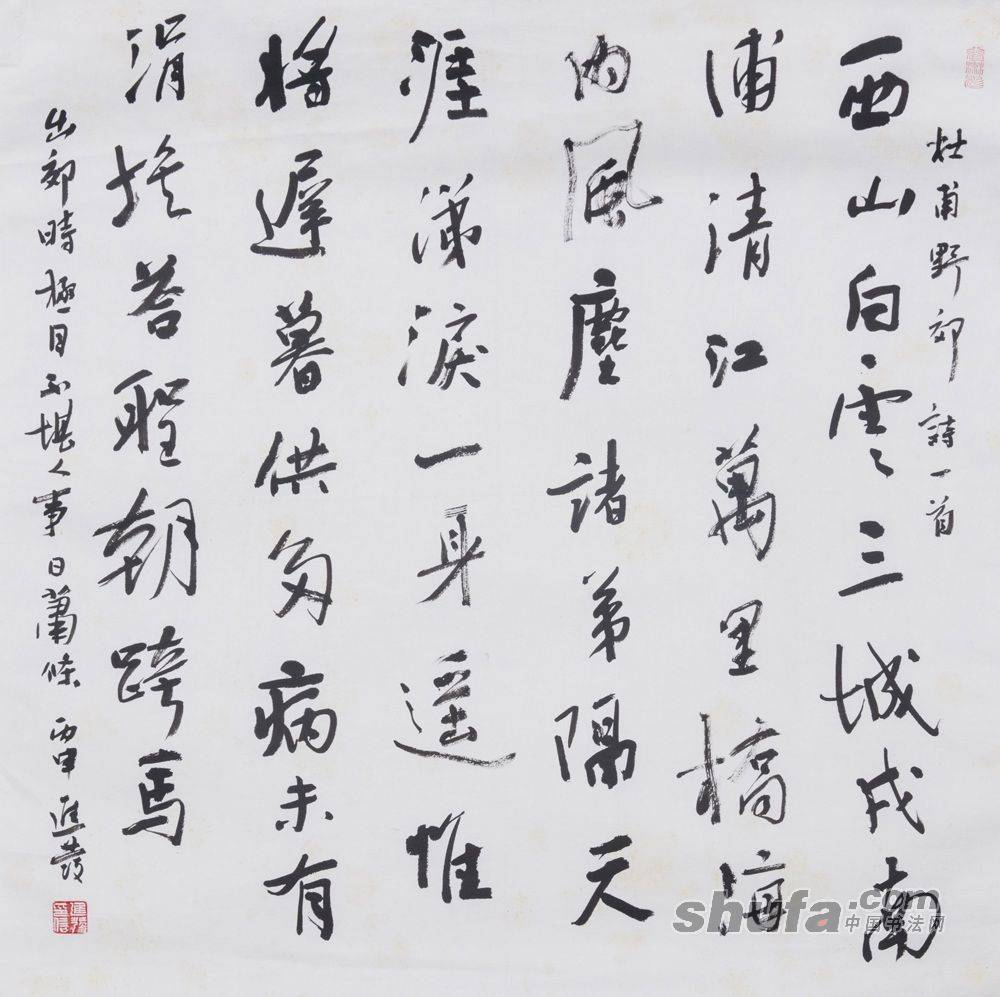 杜甫野郊詩一首
西山白雲三城戍南
浦清江萬里橋海
内風塵諸弟隔天
涯涕淚一身遥惟
將遲暮供多病未有
涓埃答聖朝跨馬
出郊時極目不堪人事日蕭條 丙申進發
shufa.com
中国书法网